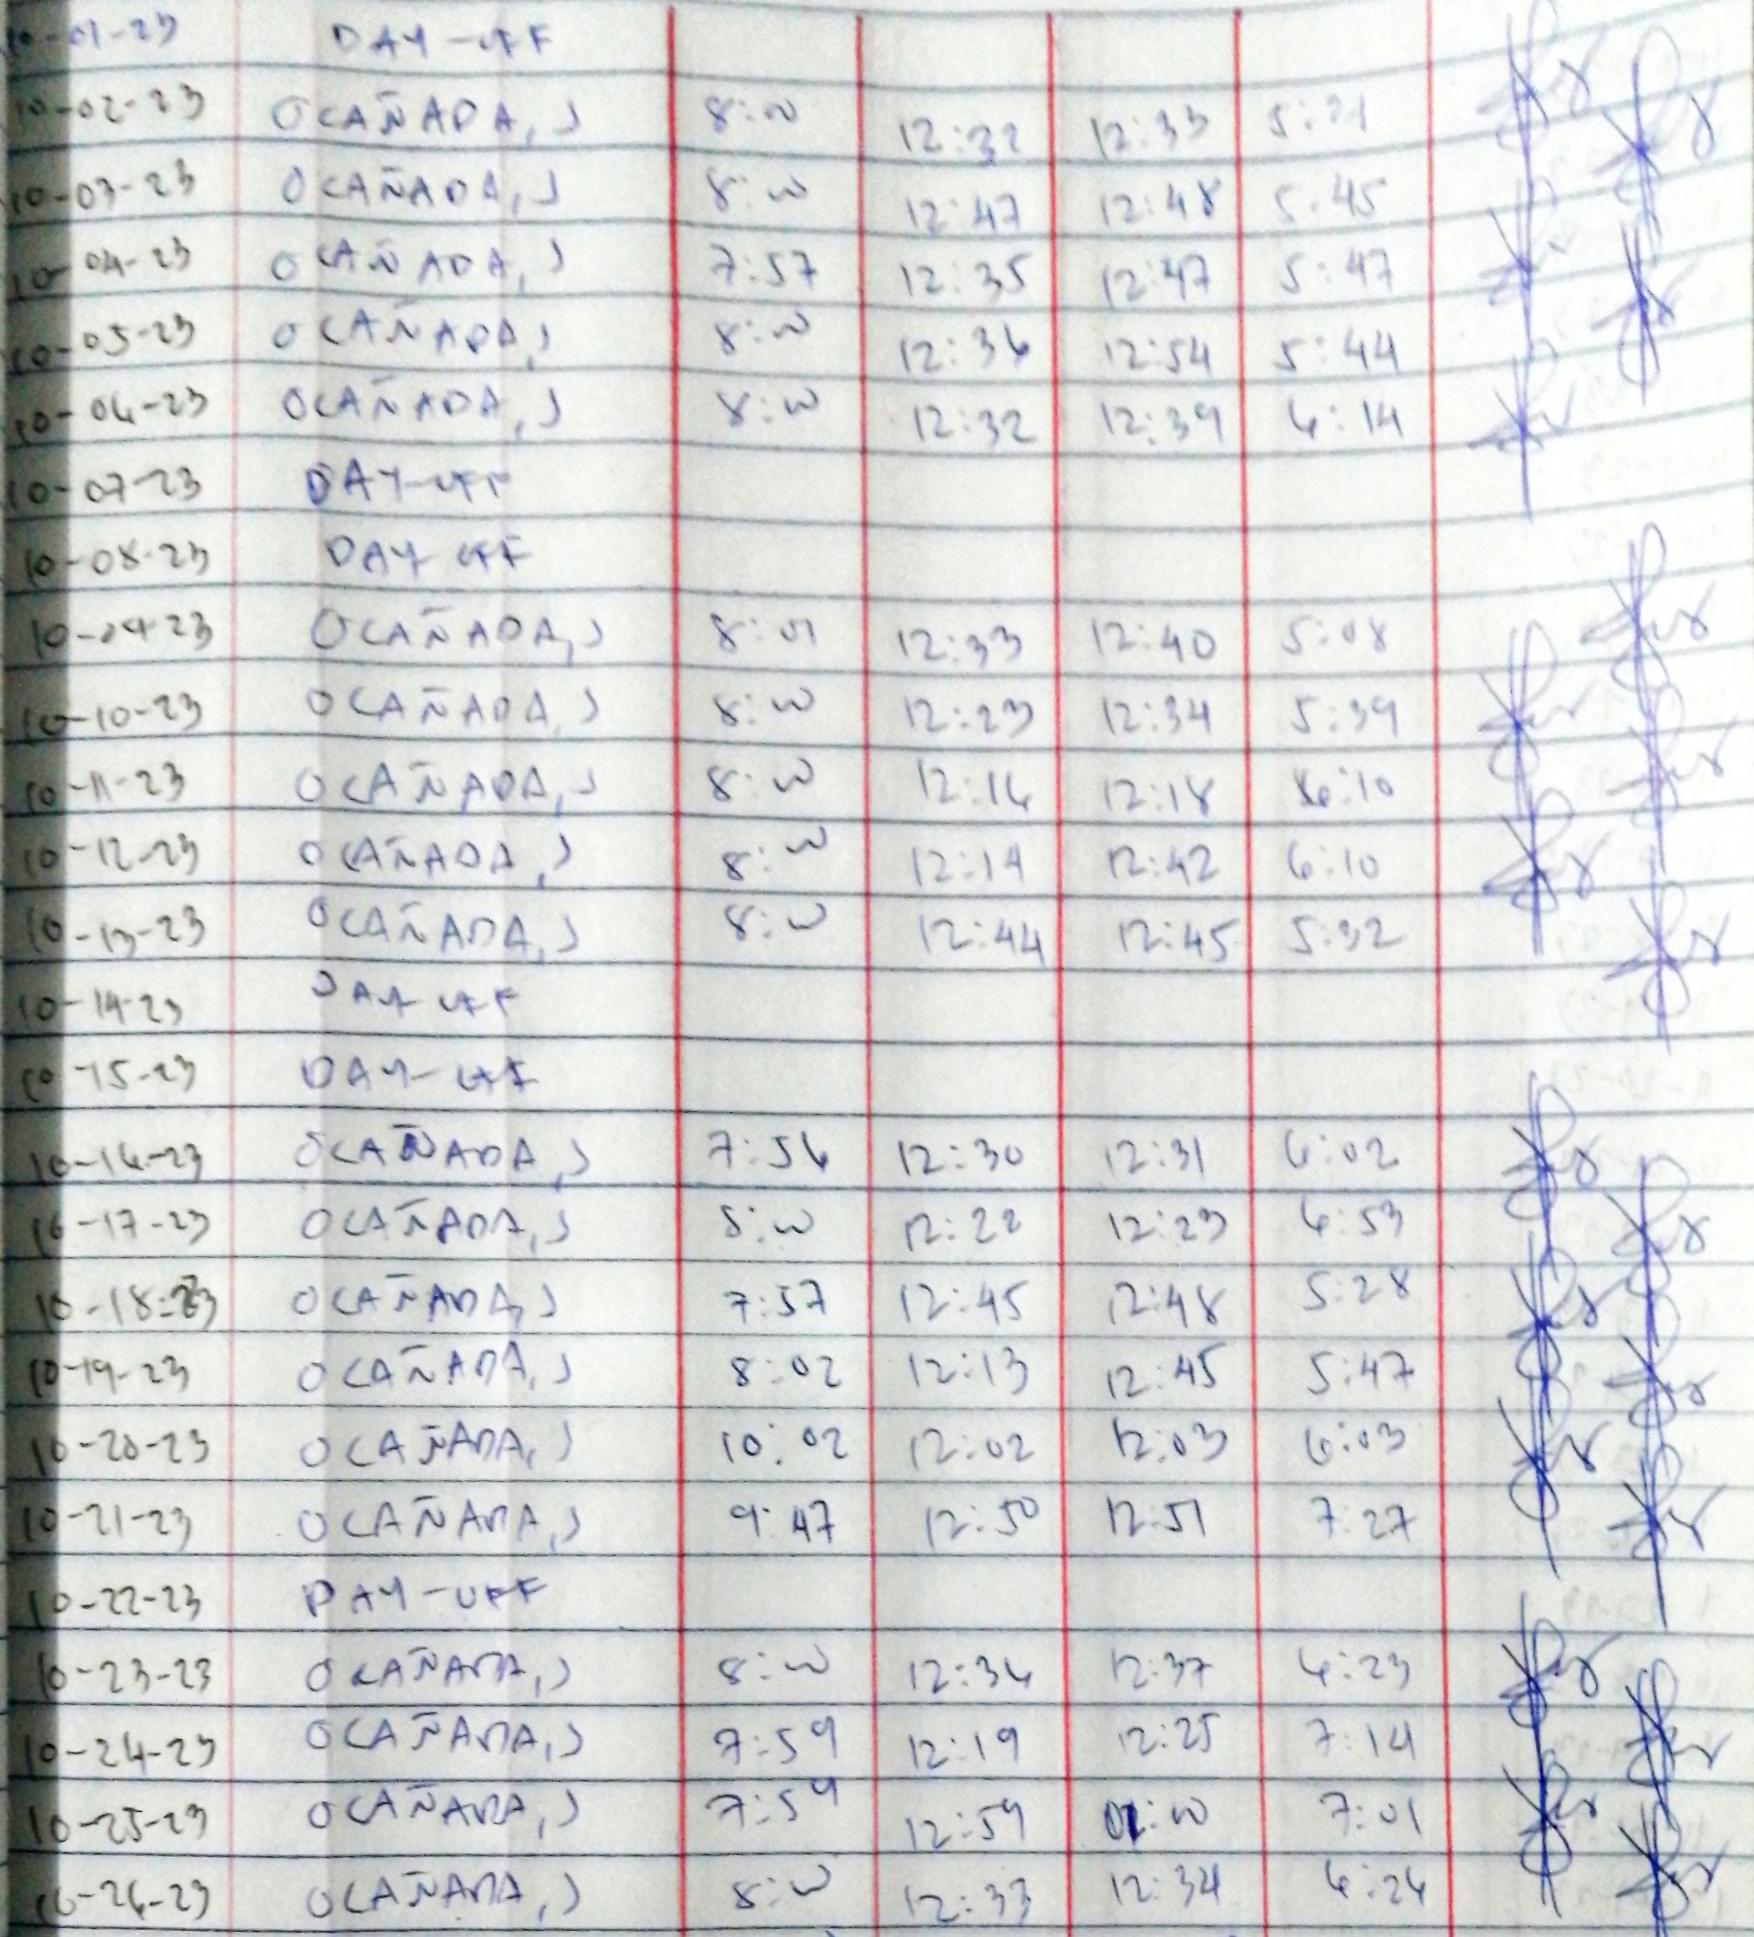 10-01-23 DAY-OFF
10-02-23 OCAÑADA, J 8:00 12:32 12:33 5:21
10-03-23 OCAÑADA, J 8:00 12:47 12:48 5:45
10-04-23 OCAÑADA, J 7:57 12:35 12:47 5:47
10-05-23 OCAÑADA, J 8:00 12:36 12:54 5:44
10-06-23 OCAÑADA, J 8:00 12:32 12:39 6:14
10-07-23 DAY-OFF
10-08-23 DAY OFF
10-09-23 OCAÑADA, J 8:01 12:33 12:40 5:08
10-10-23 OCAÑADA, J 8:00 12:23 12:34 5:39
10-11-23 OCAÑADA, J 8:00 12:16 12:18 6:10
10-12-23 OCAÑADA, J 8:00 12:14 12:42 6:10
10-13-23 OCAÑADA, J 8:00 12:44 12:45 5:32
10-14-23 DAY OFF
10-15-23 DAY-OFF
10-16-23 OCAÑADA, J 7:56 12:30 12:31 6:02
10-17-23 OCAÑADA, J 8:00 12:22 12:23 6:53
10-18-23 OCAÑADA, J 7:57 12:45 12:48 5:28
10-19-23 OCAÑADA, J 8:02 12:13 12:45 5:47
10-20-23 OCAÑADA, J 10:02 12:02 12:03 6:03
10-21-23 OCAÑADA, J 9:47 12:50 12:51 7:27
10-22-23 DAY-OFF
10-23-23 OCAÑADA, J 8:00 12:36 12:37 6:23
10-24-23 OCAÑADA, J 7:59 12:19 12:25 7:14
10-25-23 OCAÑADA, J 7:59 12:59 01:00 7:01
10-26-23 OCAÑADA, J 8:00 12:33 12:34 6:26